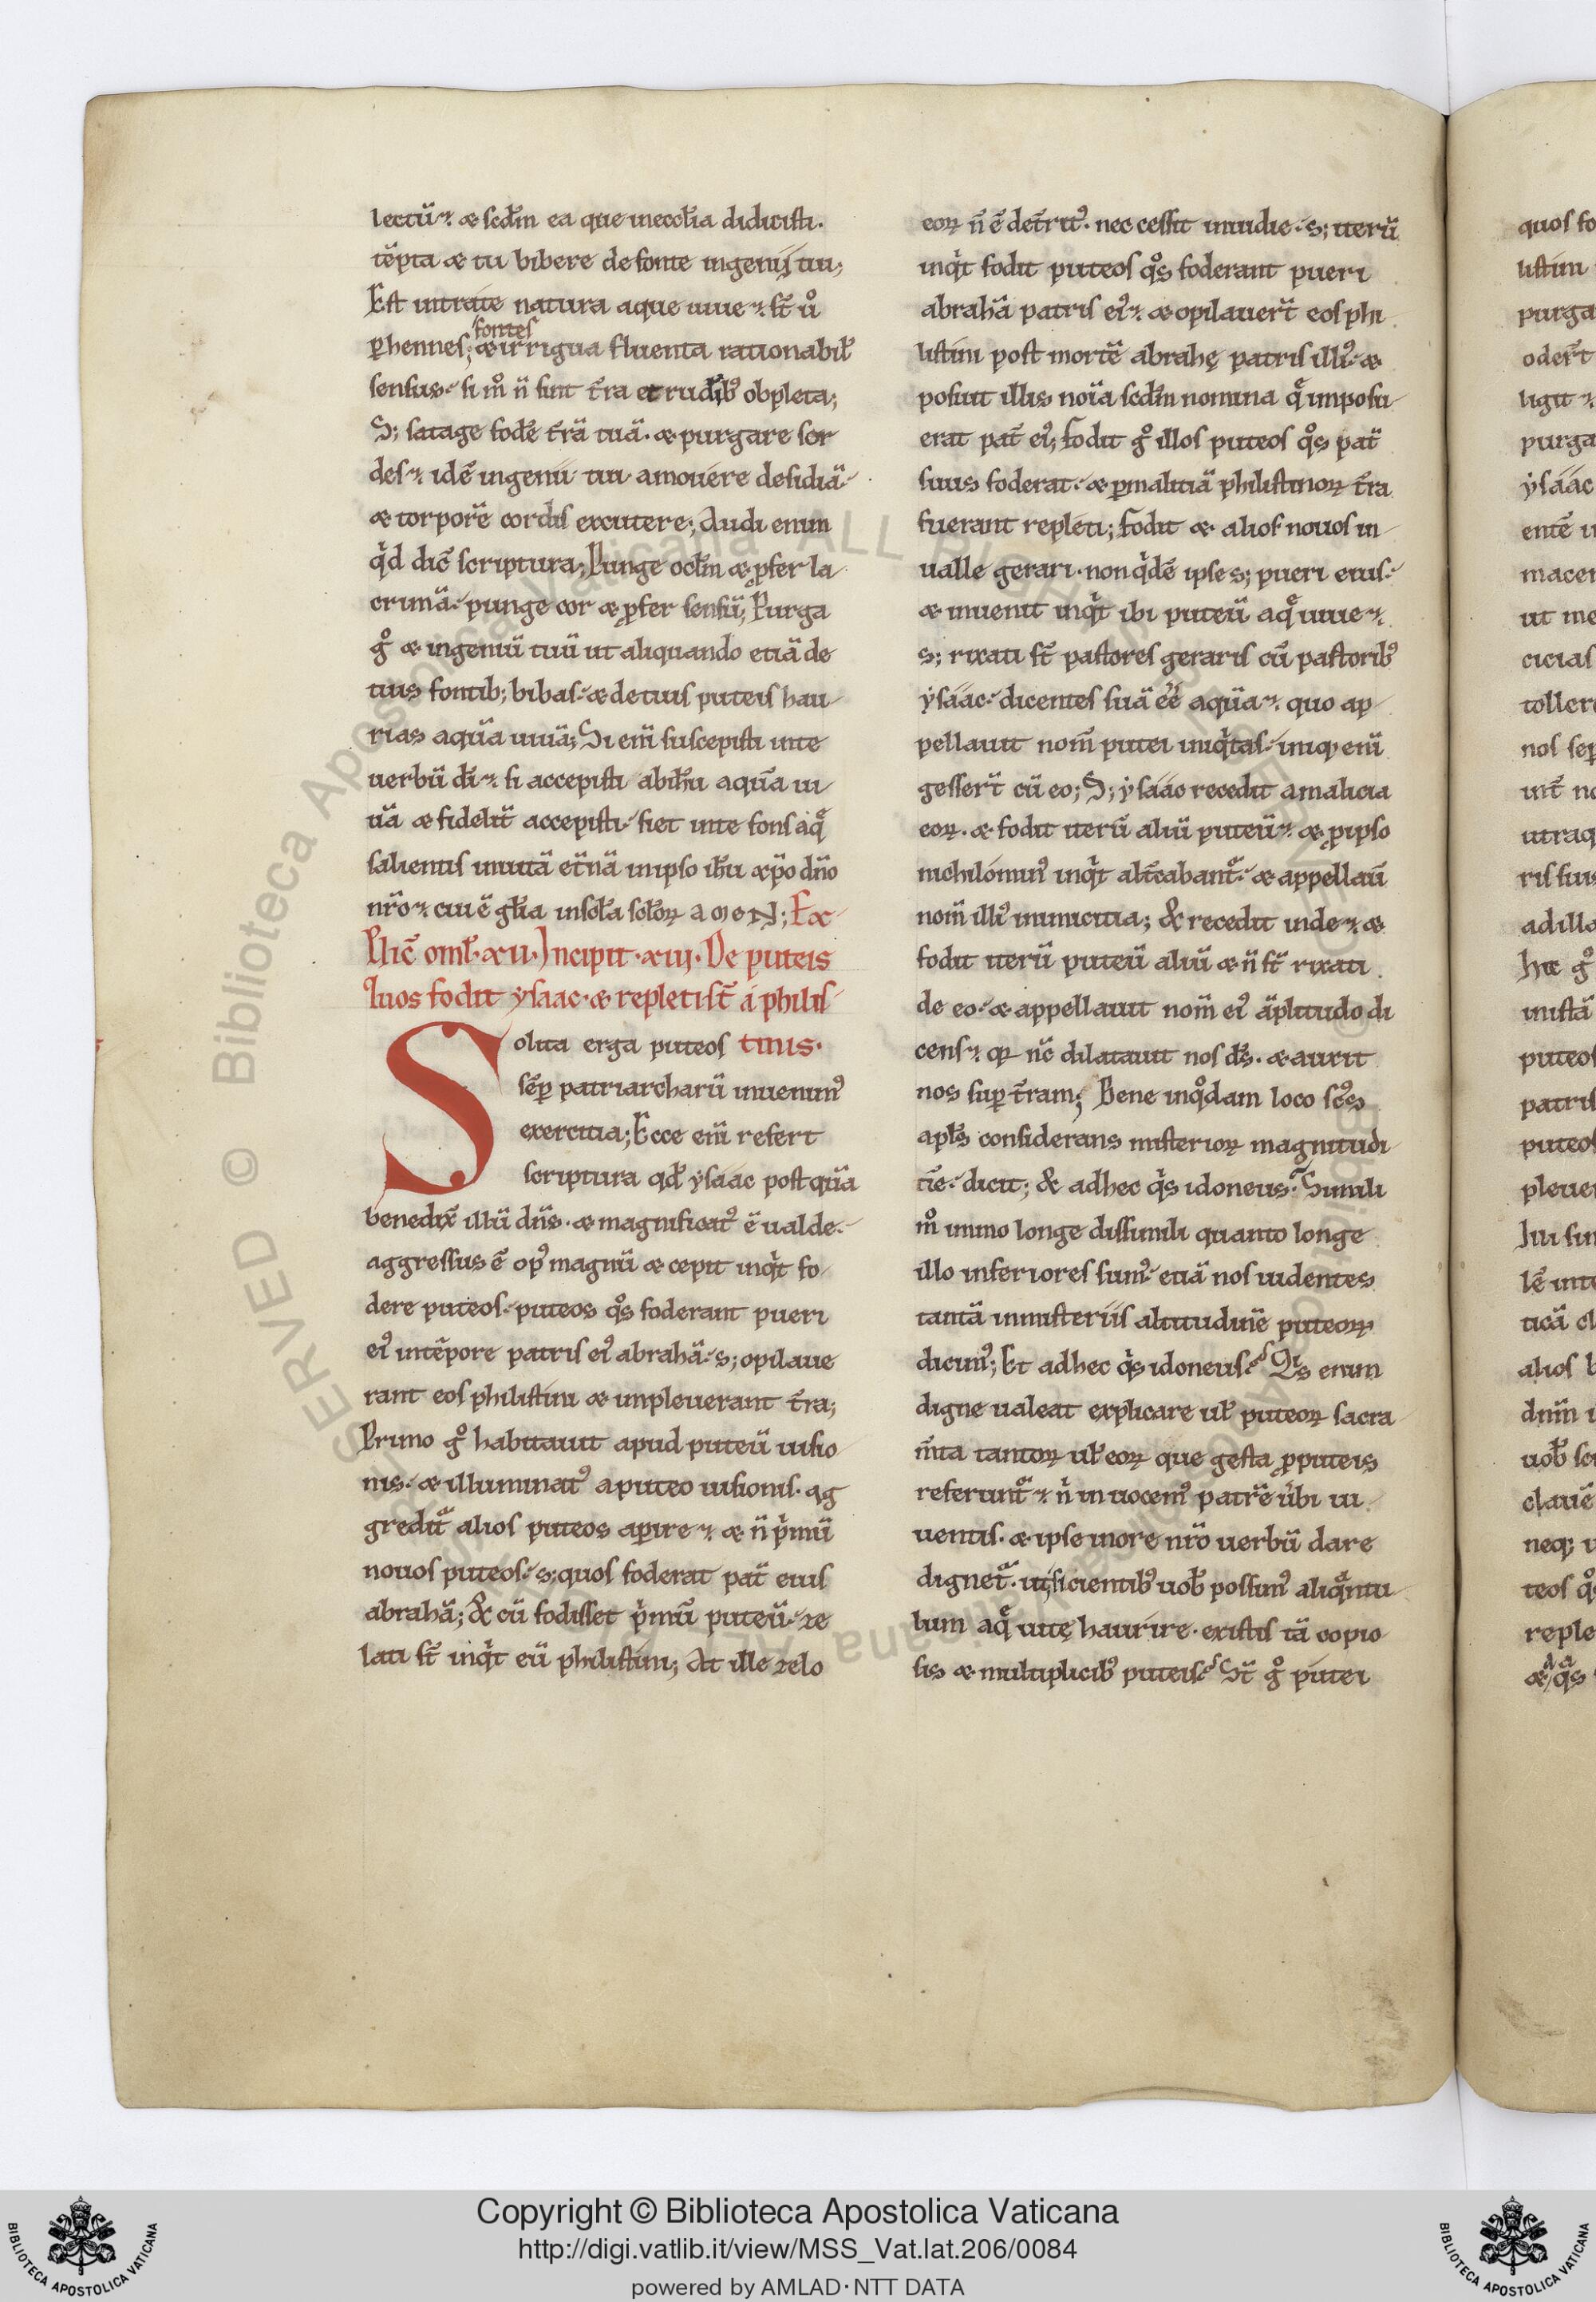 lectū. & scdm ea que in eccłia didicisti.
tēpta & tu bibere de fonte ingenij tui;
Est intra te natura aque uiue. sт̄ ů
fontes
phennes; & irrigua fluenta rationabił
sensus. si m̊ n̄ sint t̄ra et rudib; obpleta;
S; satage foďe t̄rā tuā. & purgare sor
des. idē ingenii tui amouére desidiā.
& torporē cordis excutere; Audi enim
qd dic̄ scriptura; Punge oclm & pfer la
crimā. punge cor & pfer sensū; Purga
g̊ & ingeniū tuū ut aliquando etiā de
tuis fontib; bibas. & de tuis puteis hau
rias aquā uiuā; Si enī suscepisti in te
uerbū dī. si accepisti ab ihu aquā ui
uā & fidelit̄ accepisti. fiet in te fons aq̄
salientis in uitā et̄nā in ipso ihu xp̄o dn̄o
nr̄o. cui ē głia in scła scłoꝝ amen; Ex
Plic̄ omł. xii. Incipit. xiij. De puteis
quos fodit ysaac. & repleti sт̄ a philis
Solita erga puteos tinis.
sēp patriarcharū inuenim᾿
exercitia; Ecce enī refert
scriptura qď ysáác postquā
benedix̄ illū dn̄s. & magnificat᾿ ē ualde.
aggressus ē op᾿ magnū & cepit inqͥt fo
dere puteos. puteos qͦs foderant pueri
ei᾿ in tēpore patris ei᾿ abrahā. s; opilaue
rant eos philistini & impleuerant t̄ra;
Primo g̊ habitauit apud puteū uisio
nis. & illuminat᾿ a puteo uisionis. ag
gredit᷑ alios puteos apire. & n̄ pͥmū
novos puteos. s; quos foderat pat̄ eius
abrahā; & cū fodisset pͥmū puteū. ze
lati sт̄ inqͥt eū philistini; At ille zelo
eoꝝ n̄ ē det̄rit᾿. nec cessit inuidie. s; iterū
inqͥt fodit puteos qͦs foderant pueri
abrahā patris ei᾿. & opilauer̄t eos phi
listini post mortē abrahę patris illi᾿. &
posuit illis noīa scdm nomina q̄ imposu
erat pat̄ ei᾿; Fodit g̊ illos puteos qͦs pat̄
suus foderat. & p malitiā philistinoꝝ t̄ra
fuerant repleti; Fodit & alios nouos in
ualle gerari. non qͥdē ipse s; pueri eius.
& inuenit inqͥt ibi puteū aq̄ uiue.
s; rixati sт̄ pastores geraris cū pastorib᾿
ysáác. dicentes suā éé aquā. quo ap
pellauit nom̄ putei iniqͥtas. iniq; enī
gesser̄t cū eo; S; ysáác recedit a malicia
eoꝝ. & fodit iterū aliū puteū. & p ipso
nichilómin᾿ inqͥt alt̄cabant᷑. & appellauī
nom̄ illi᾿ inimicitia; & recedit inde. &
fodit iterū puteū aliū & n̄ sт̄ rixati
de eo. & appellauit nom̄ ei᾿ āplitudo di
cens. qꝛ nc̄ dilatauit nos ds̄. & auxit
nos sup t̄ram; Bene in qͦdam loco sc̄s
apłs considerans misterioꝝ magnitudi
nē. dicit; & ad hec qͥs idoneus? Simili
m̊ immo longe dissimili quanto longe
illo inferiores sum᾿. etiā nos uidentes
tantā in misteriis altitudinē puteoꝝ
dicim᾿; Et ad hec qͥs idoneus? Qͥs enim
digne ualeat explicare uł puteoꝝ sacra
m̄ta tantoꝝ uł eoꝝ que gesta p puteis
referunt᷑. nͥ inuocem᾿ patrē ůbi ui
uentis. & ipse in ore nr̄o uerbū dare
dignet᷑. ut sicientib᾿ uob̄ possim᾿ aliqͣntu
lum aq̄ uitę haurire. existis tā copio
sis & multiplicib᾿ puteis? Sт̄ g̊ putei